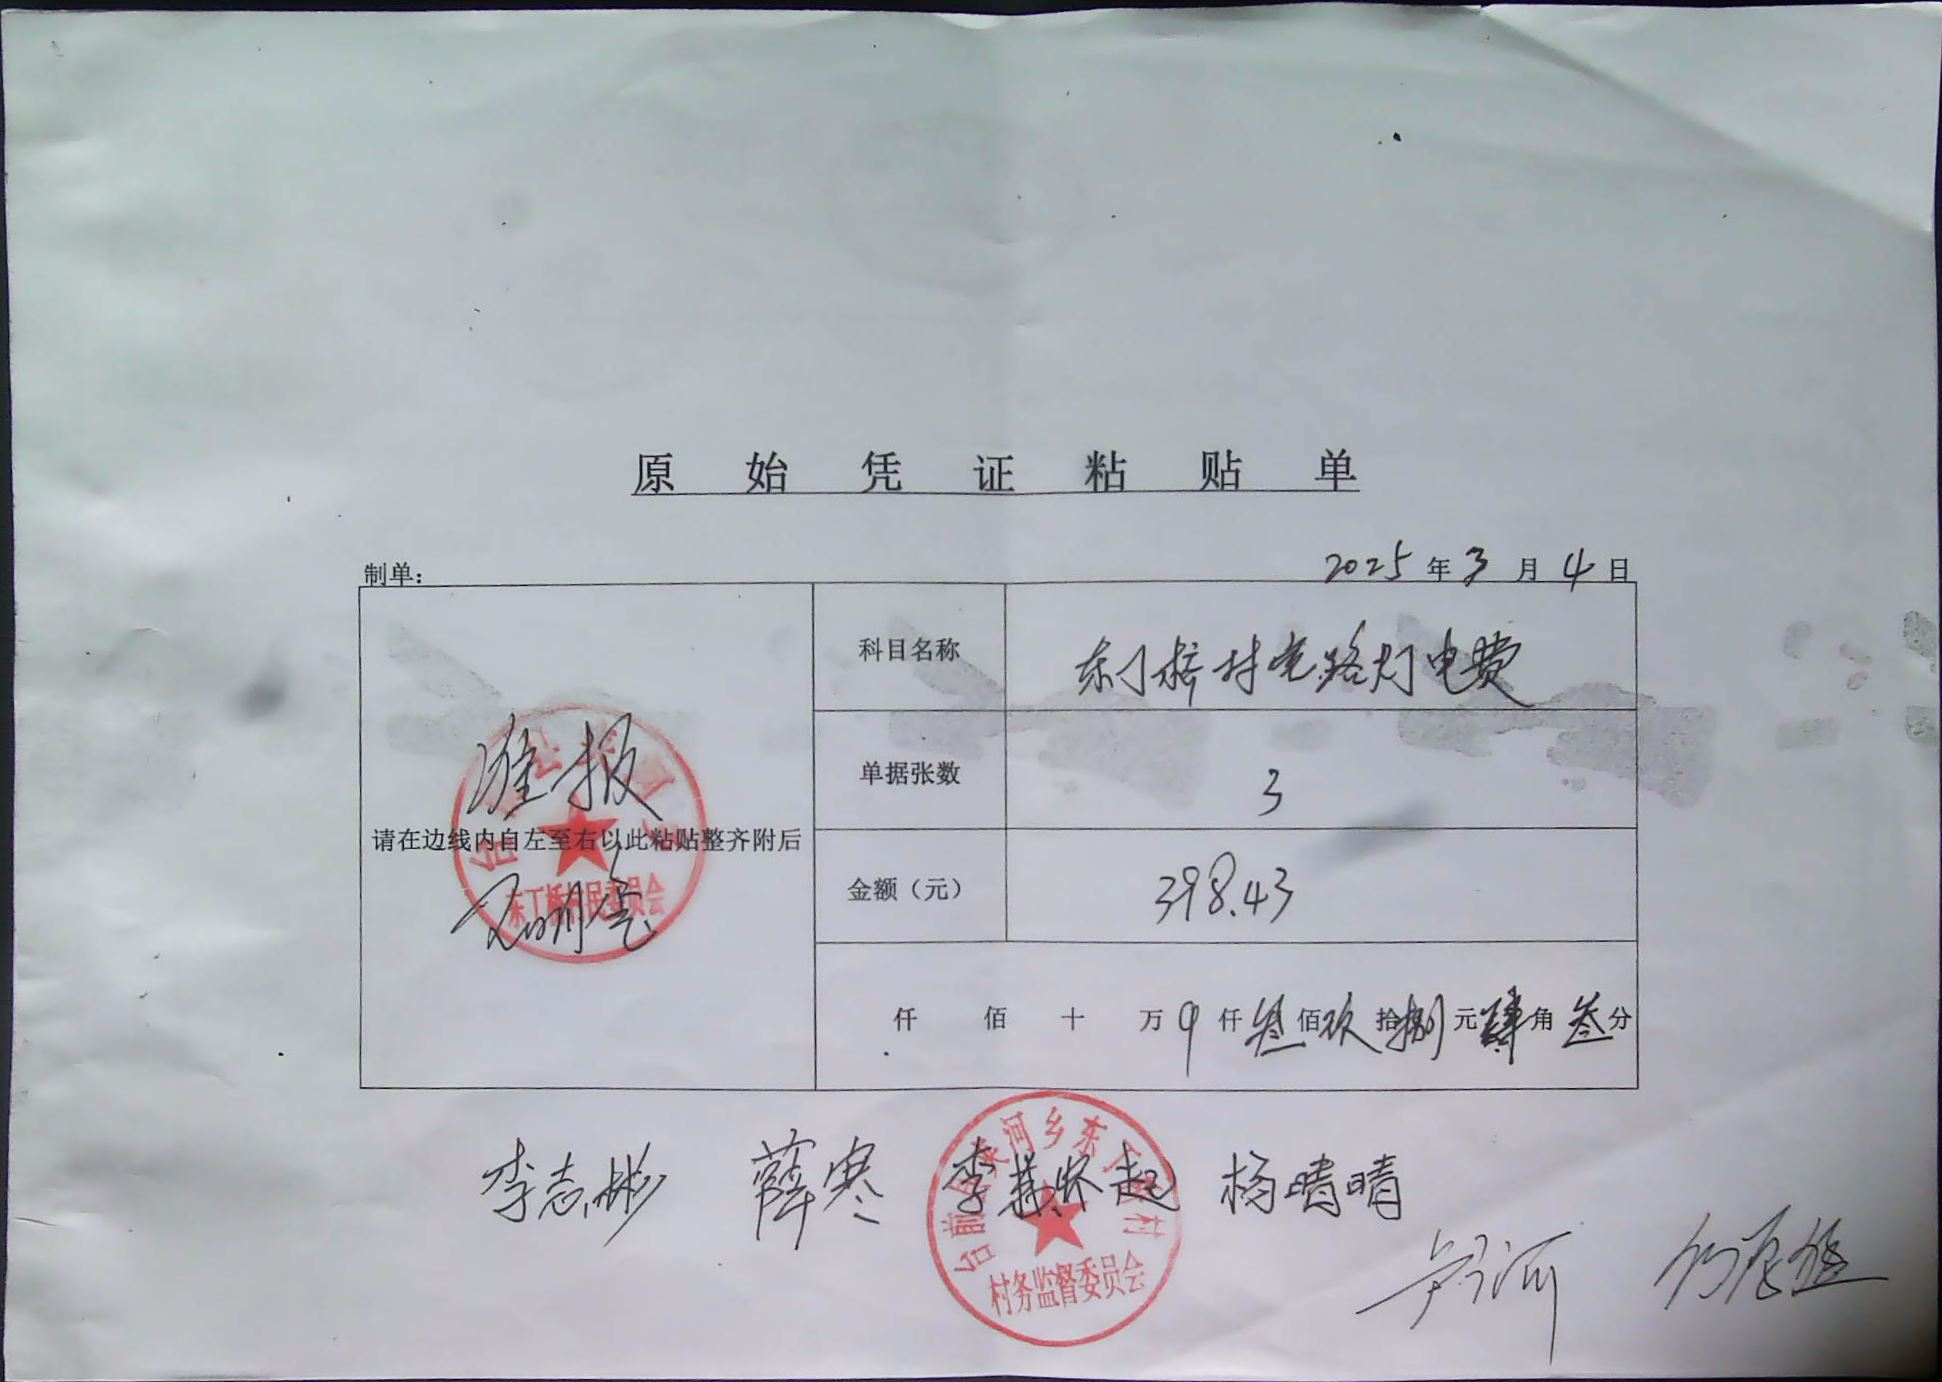 原始凭证粘贴单
制单:
2025年3月4日
科目名称
东丁桥村党路灯电费
单据张数
3
准报
请在边线内自左至右以此粘贴整齐附后
东丁桥村民委员会
金额（元）
398.43
仟 佰 十 万 仟叁佰玖拾捌元肆角叁分
李志彬 薛寒 李 起 杨晴晴
台前 河乡东丁 村
村务监督委员会